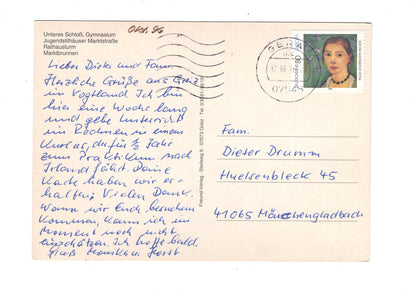 Unteres Schloß, Gymnasium
Jugendstilhäuser Marktstraße
Rathausturm
Marktbrunnen
Okt. 96
Lieber Dieter und Fam.
Herzliche Grüße aus Greiz
im Vogtland. Ich bin
hier eine Woche lang
und gebe Unterricht
im Rechnen in einem
Kurs, der für ½ Jahr
zum Praktikum nach
Irland fährt. Deine
Karte haben wir er-
halten, Vielen Dank.
Wann wir Euch besuchen
kommen, kann ich im
Moment noch nicht
einschätzen. Ich hoffe bald.
Gruß Monika + Horst
Freund-Verlag · Steilweg 9 · 07973 Greiz · Tel.
GERA
075
Fam.
Dieter Drumm
Huelsenbleck 45
41065 Mönchengladbach